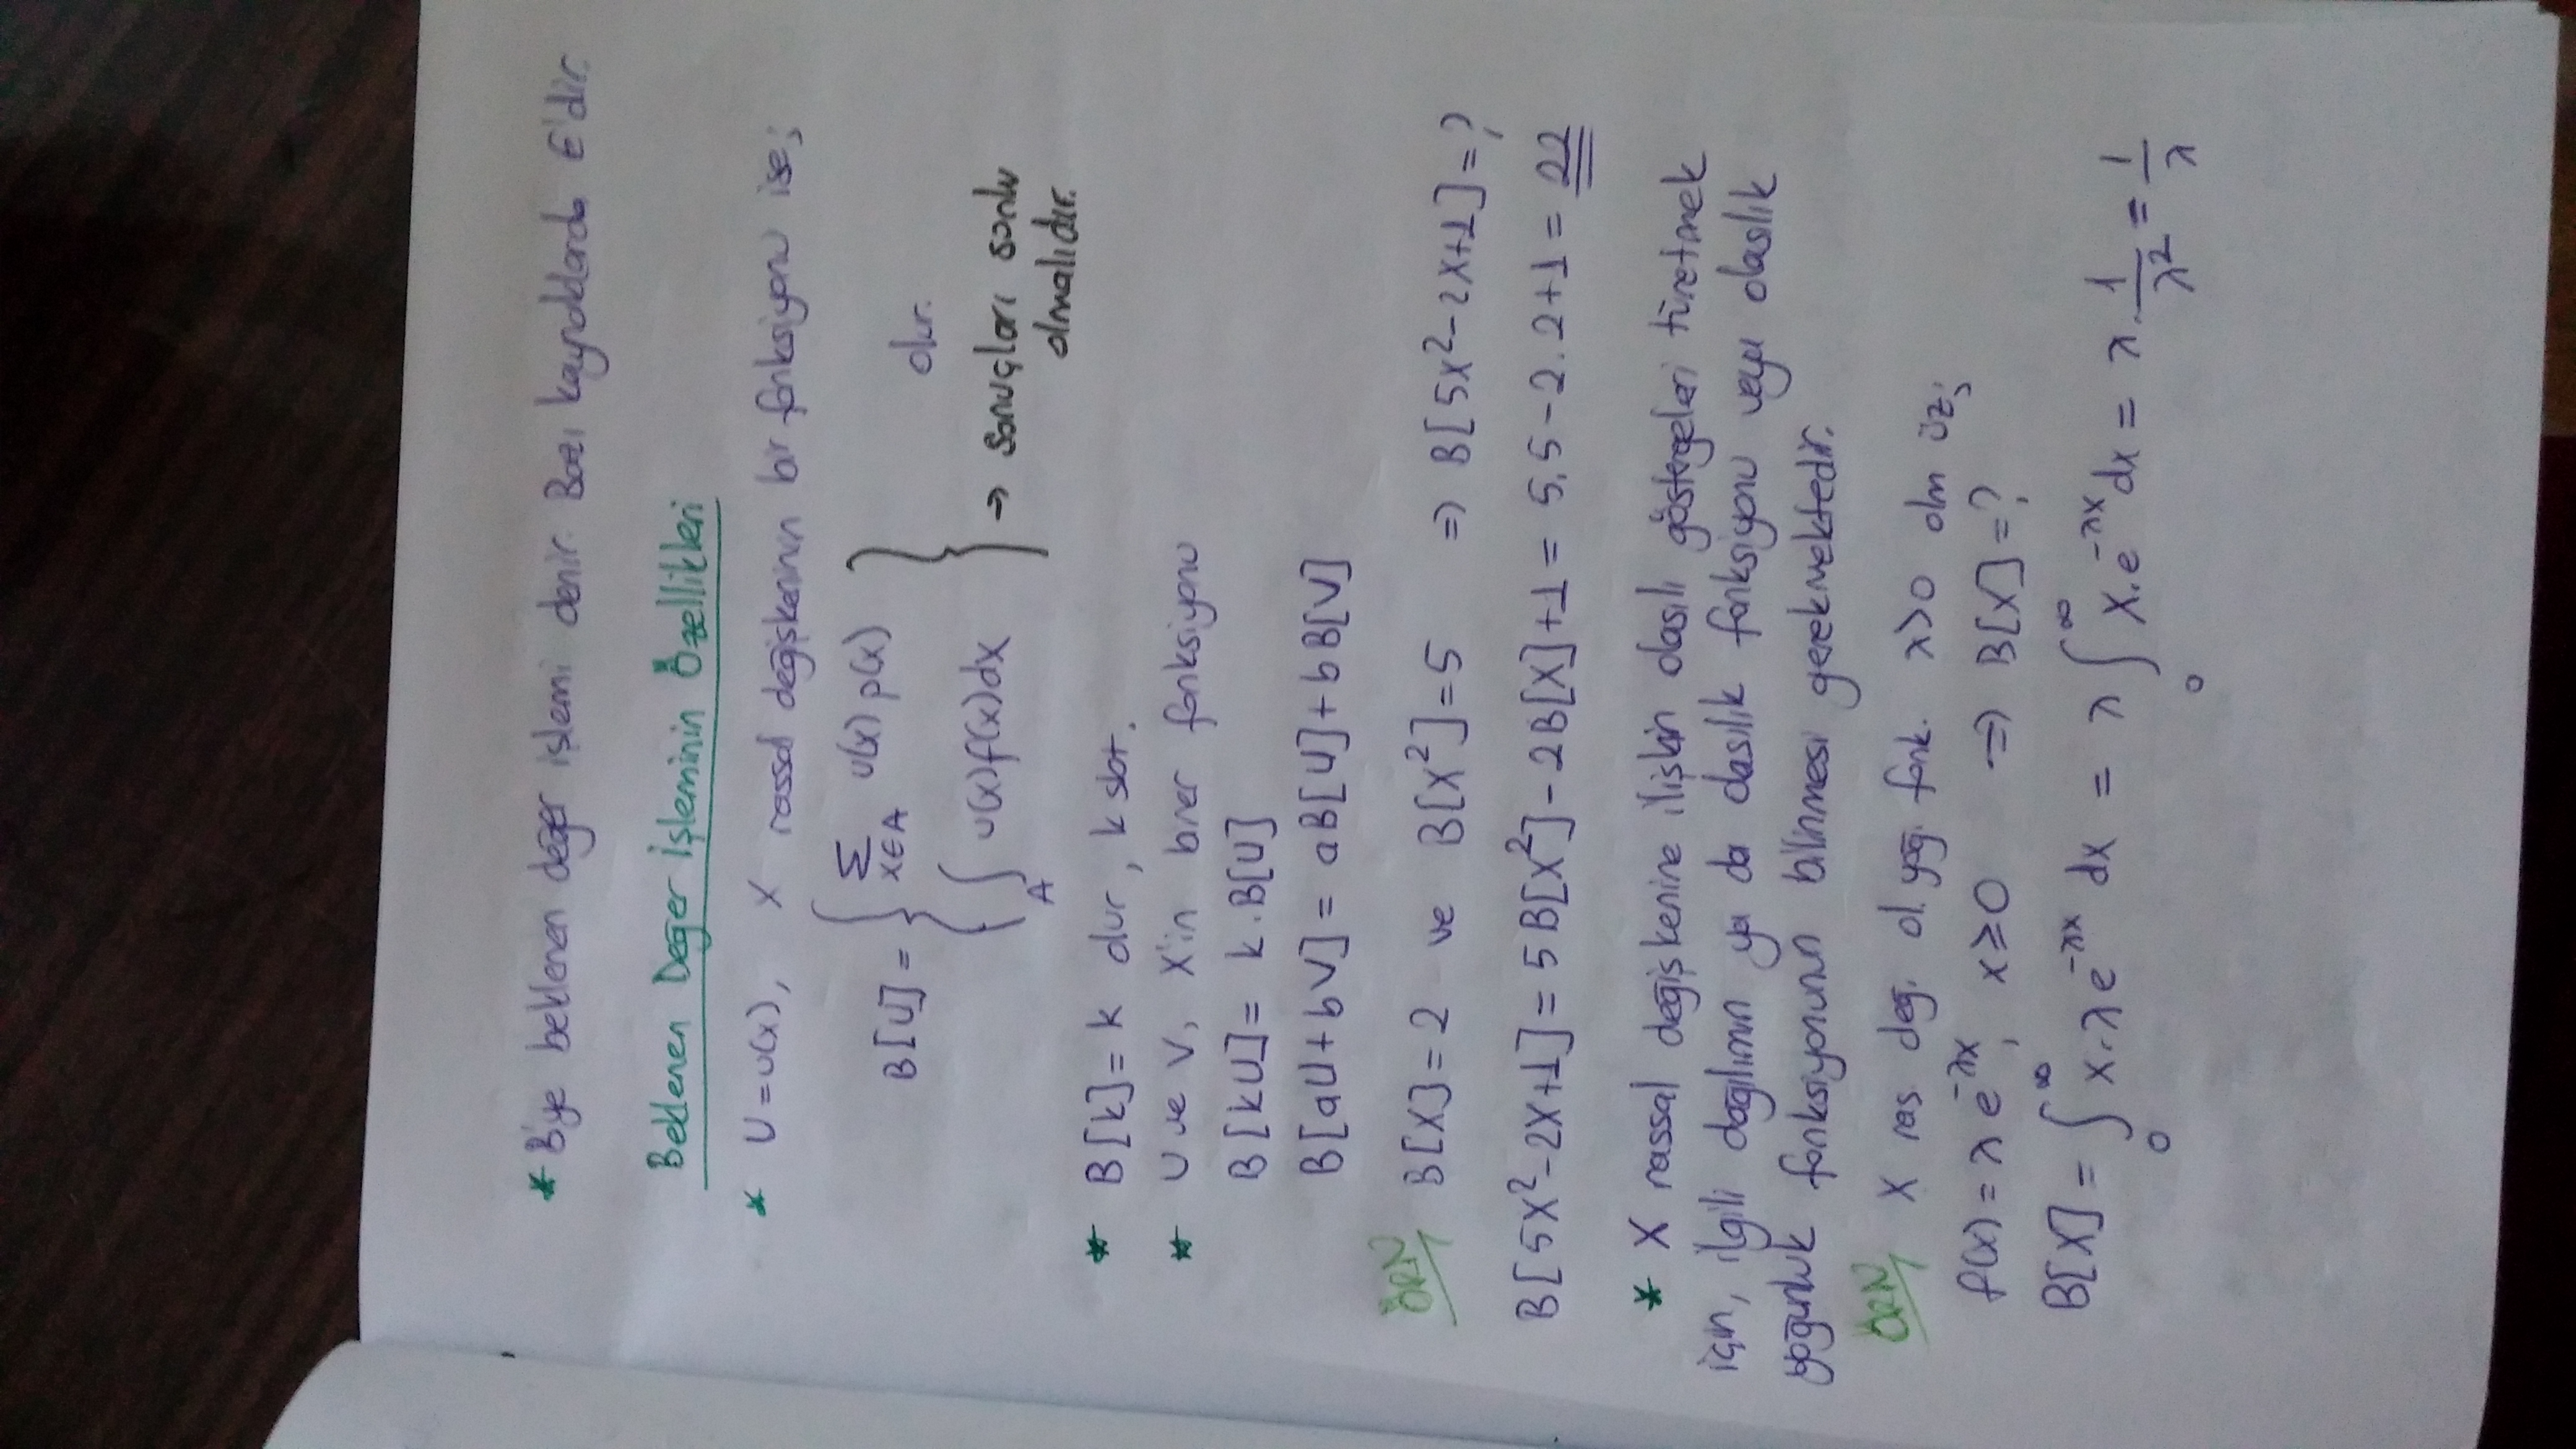 * B'ye beklenen değer işlemi denir. Bazı kaynaklarda E'dir.
Beklenen Değer İşleminin Özellikleri
* U = u(x), X rassal değişkeninin bir fonksiyonu ise;
B[U] = { Σ x∈A u(x) p(x)
∫ A u(x) f(x) dx } olur.
→ sonuçları sonlu
olmalıdır.
* B[k] = k dur, k sbt.
* U ve V, X'in birer fonksiyonu
B[kU] = k.B[U]
B[aU+bV] = aB[U]+bB[V]
ÖRN B[X]=2 ve B[X²]=5 ⇒ B[5X²-2X+1]=?
B[5X²-2X+1] = 5B[X²]-2B[X]+1 = 5.5-2.2+1 = 22
* X rassal değişkenine ilişkin olasılı göstergeleri türetmek
için, ilgili dağılımın ya da olasılık fonksiyonu veya olasılık
yoğunluk fonksiyonunun bilinmesi gerekmektedir.
ÖRN X ras. değ. ol. yoğ. fonk. λ>0 olm üz;
f(x) = λe^(-λx), x≥0 ⇒ B[X]=?
B[X] = ∫₀^∞ x.λe^(-λx) dx = λ∫₀^∞ x.e^(-λx) dx = λ.1/λ² = 1/λ